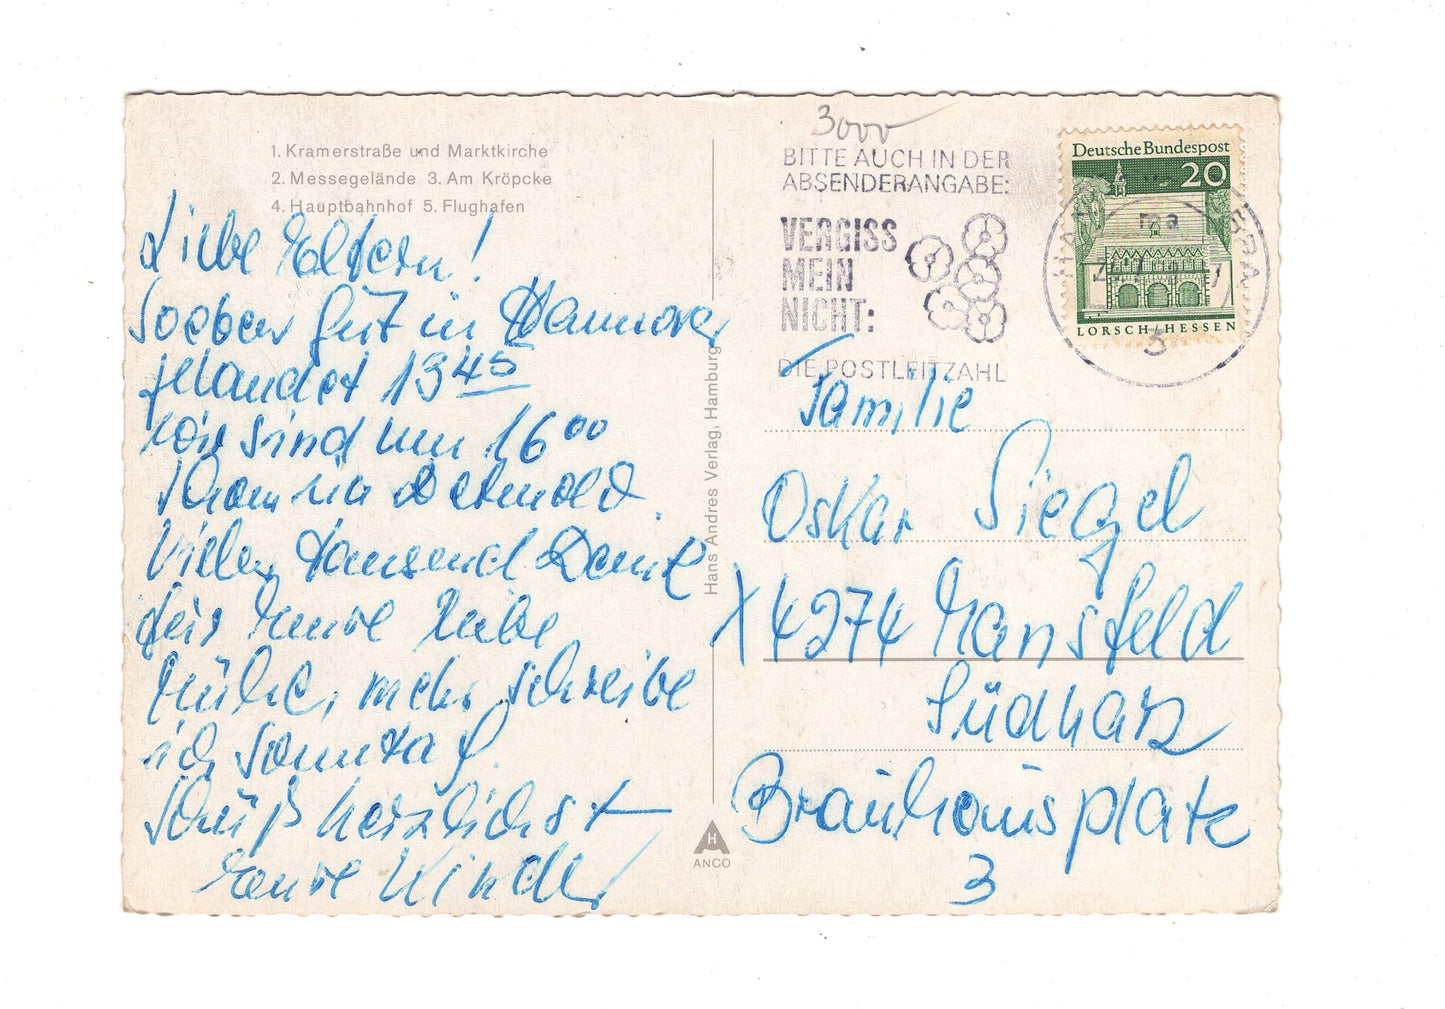 1. Kramerstraße und Marktkirche
2. Messegelände 3. Am Kröpcke
4. Hauptbahnhof 5. Flughafen
Liebe Eltern!
Soeben gut in Hannover
gelandet 13 45
wir sind um 16 00
schon in Detmold.
Vielen tausend Dank
für Eure liebe
Mühe, mehr schreibe
ich Sonntag.
herzlichst
Eure Kinder
Hans Andres Verlag, Hamburg
H
ANCO
3000
BITTE AUCH IN DER
ABSENDERANGABE:
VERGISS
MEIN
NICHT:
DIE POSTLEITZAHL
Deutsche Bundespost
20
LORSCH/HESSEN
3
Familie
Oskar Siegel
X 4274 Mansfeld
Südharz
Brauhausplatz
3